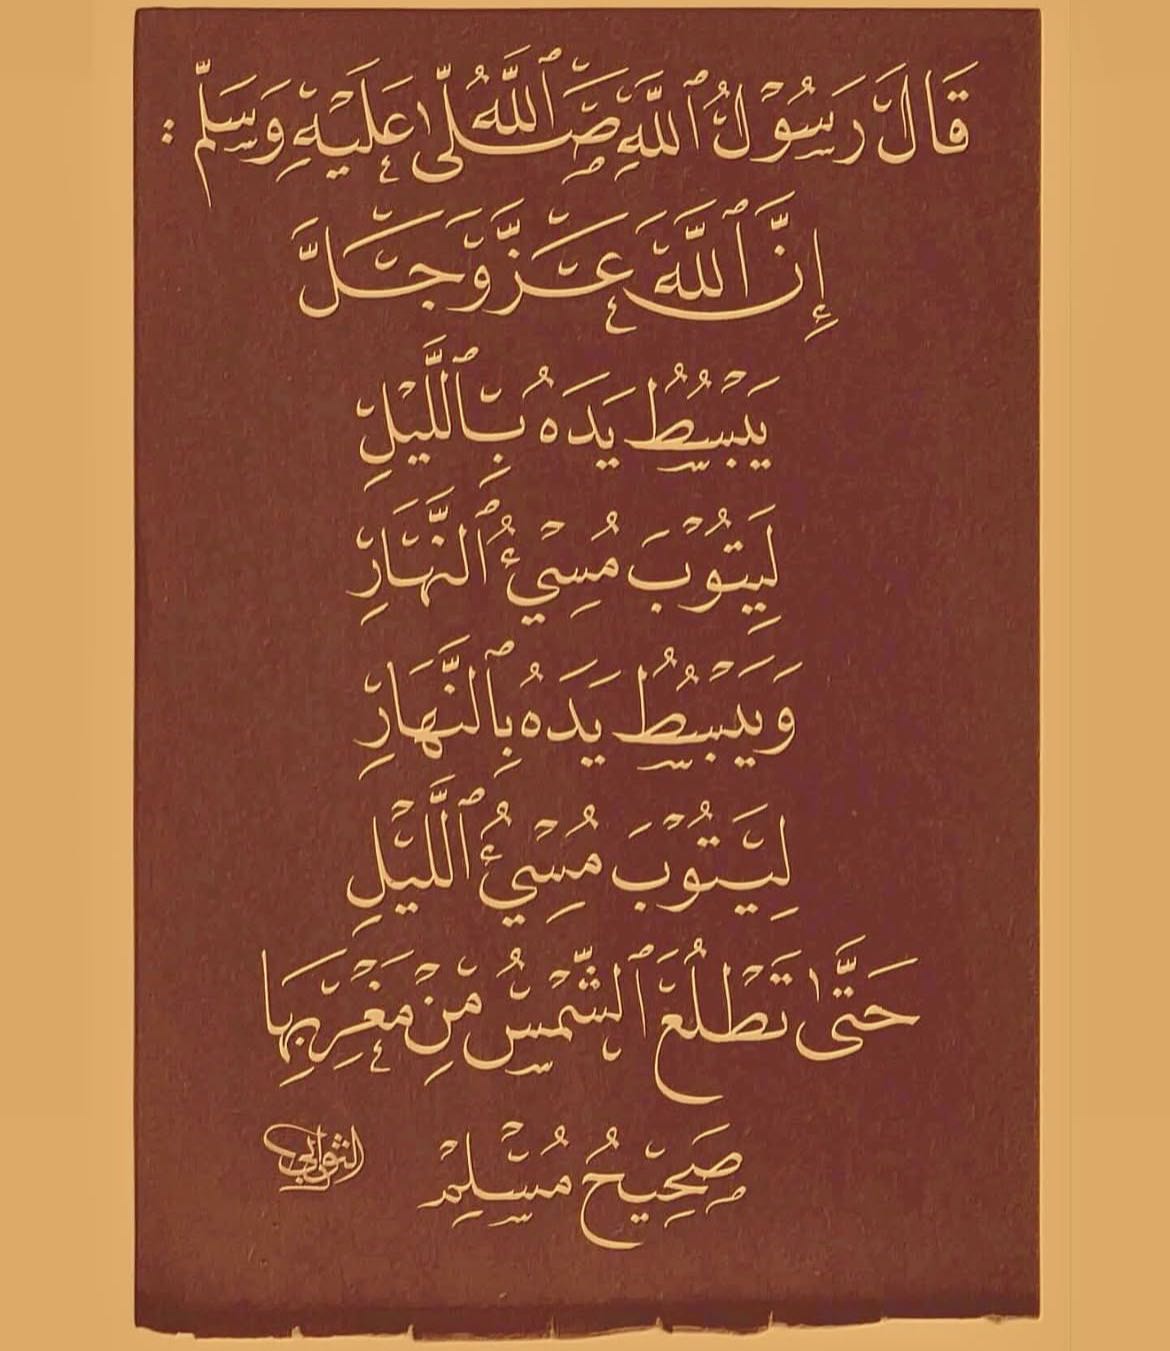 قَالَ رَسُوْلُ ٱللَّهِ صَلَّى ٱللَّهُ عَلَيْهِ وَسَلَّم :
إِنَّ ٱللَّهَ عَزَّ وَجَلَّ
يَبْسُطُ يَدَهُ بِٱللَّيْلِ
لِيَتُوْبَ مُسِيْءُ ٱلنَّهَارِ
وَيَبْسُطُ يَدَهُ بِٱلنَّهَارِ
لِيَتُوْبَ مُسِيْءُ ٱللَّيْلِ
حَتَّى تَطْلُعَ ٱلشَّمْسُ مِنْ مَغْرِبِهَا
صَحِيْحُ مُسْلِمْ